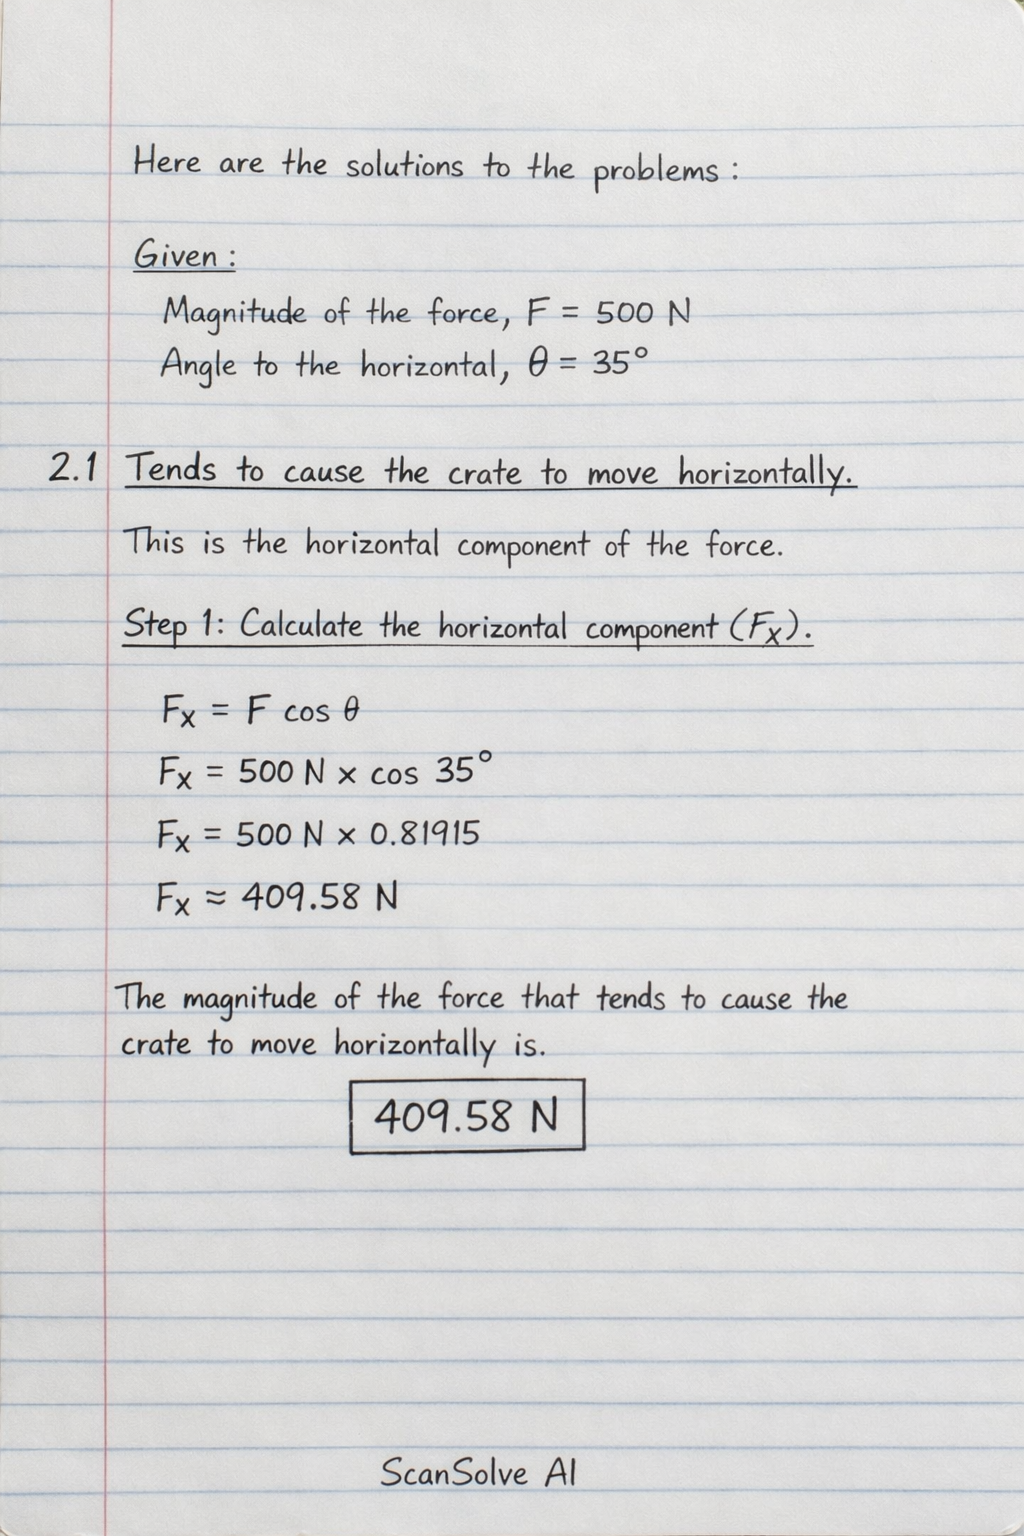 Here are the solutions to the problems :
Given :
Magnitude of the force, F = 500 N
Angle to the horizontal, θ = 35°
2.1 Tends to cause the crate to move horizontally.
This is the horizontal component of the force.
Step 1: Calculate the horizontal component (Fx).
Fx = F cos θ
Fx = 500 N × cos 35°
Fx = 500 N × 0.81915
Fx ≈ 409.58 N
The magnitude of the force that tends to cause the
crate to move horizontally is.
409.58 N
ScanSolve AI